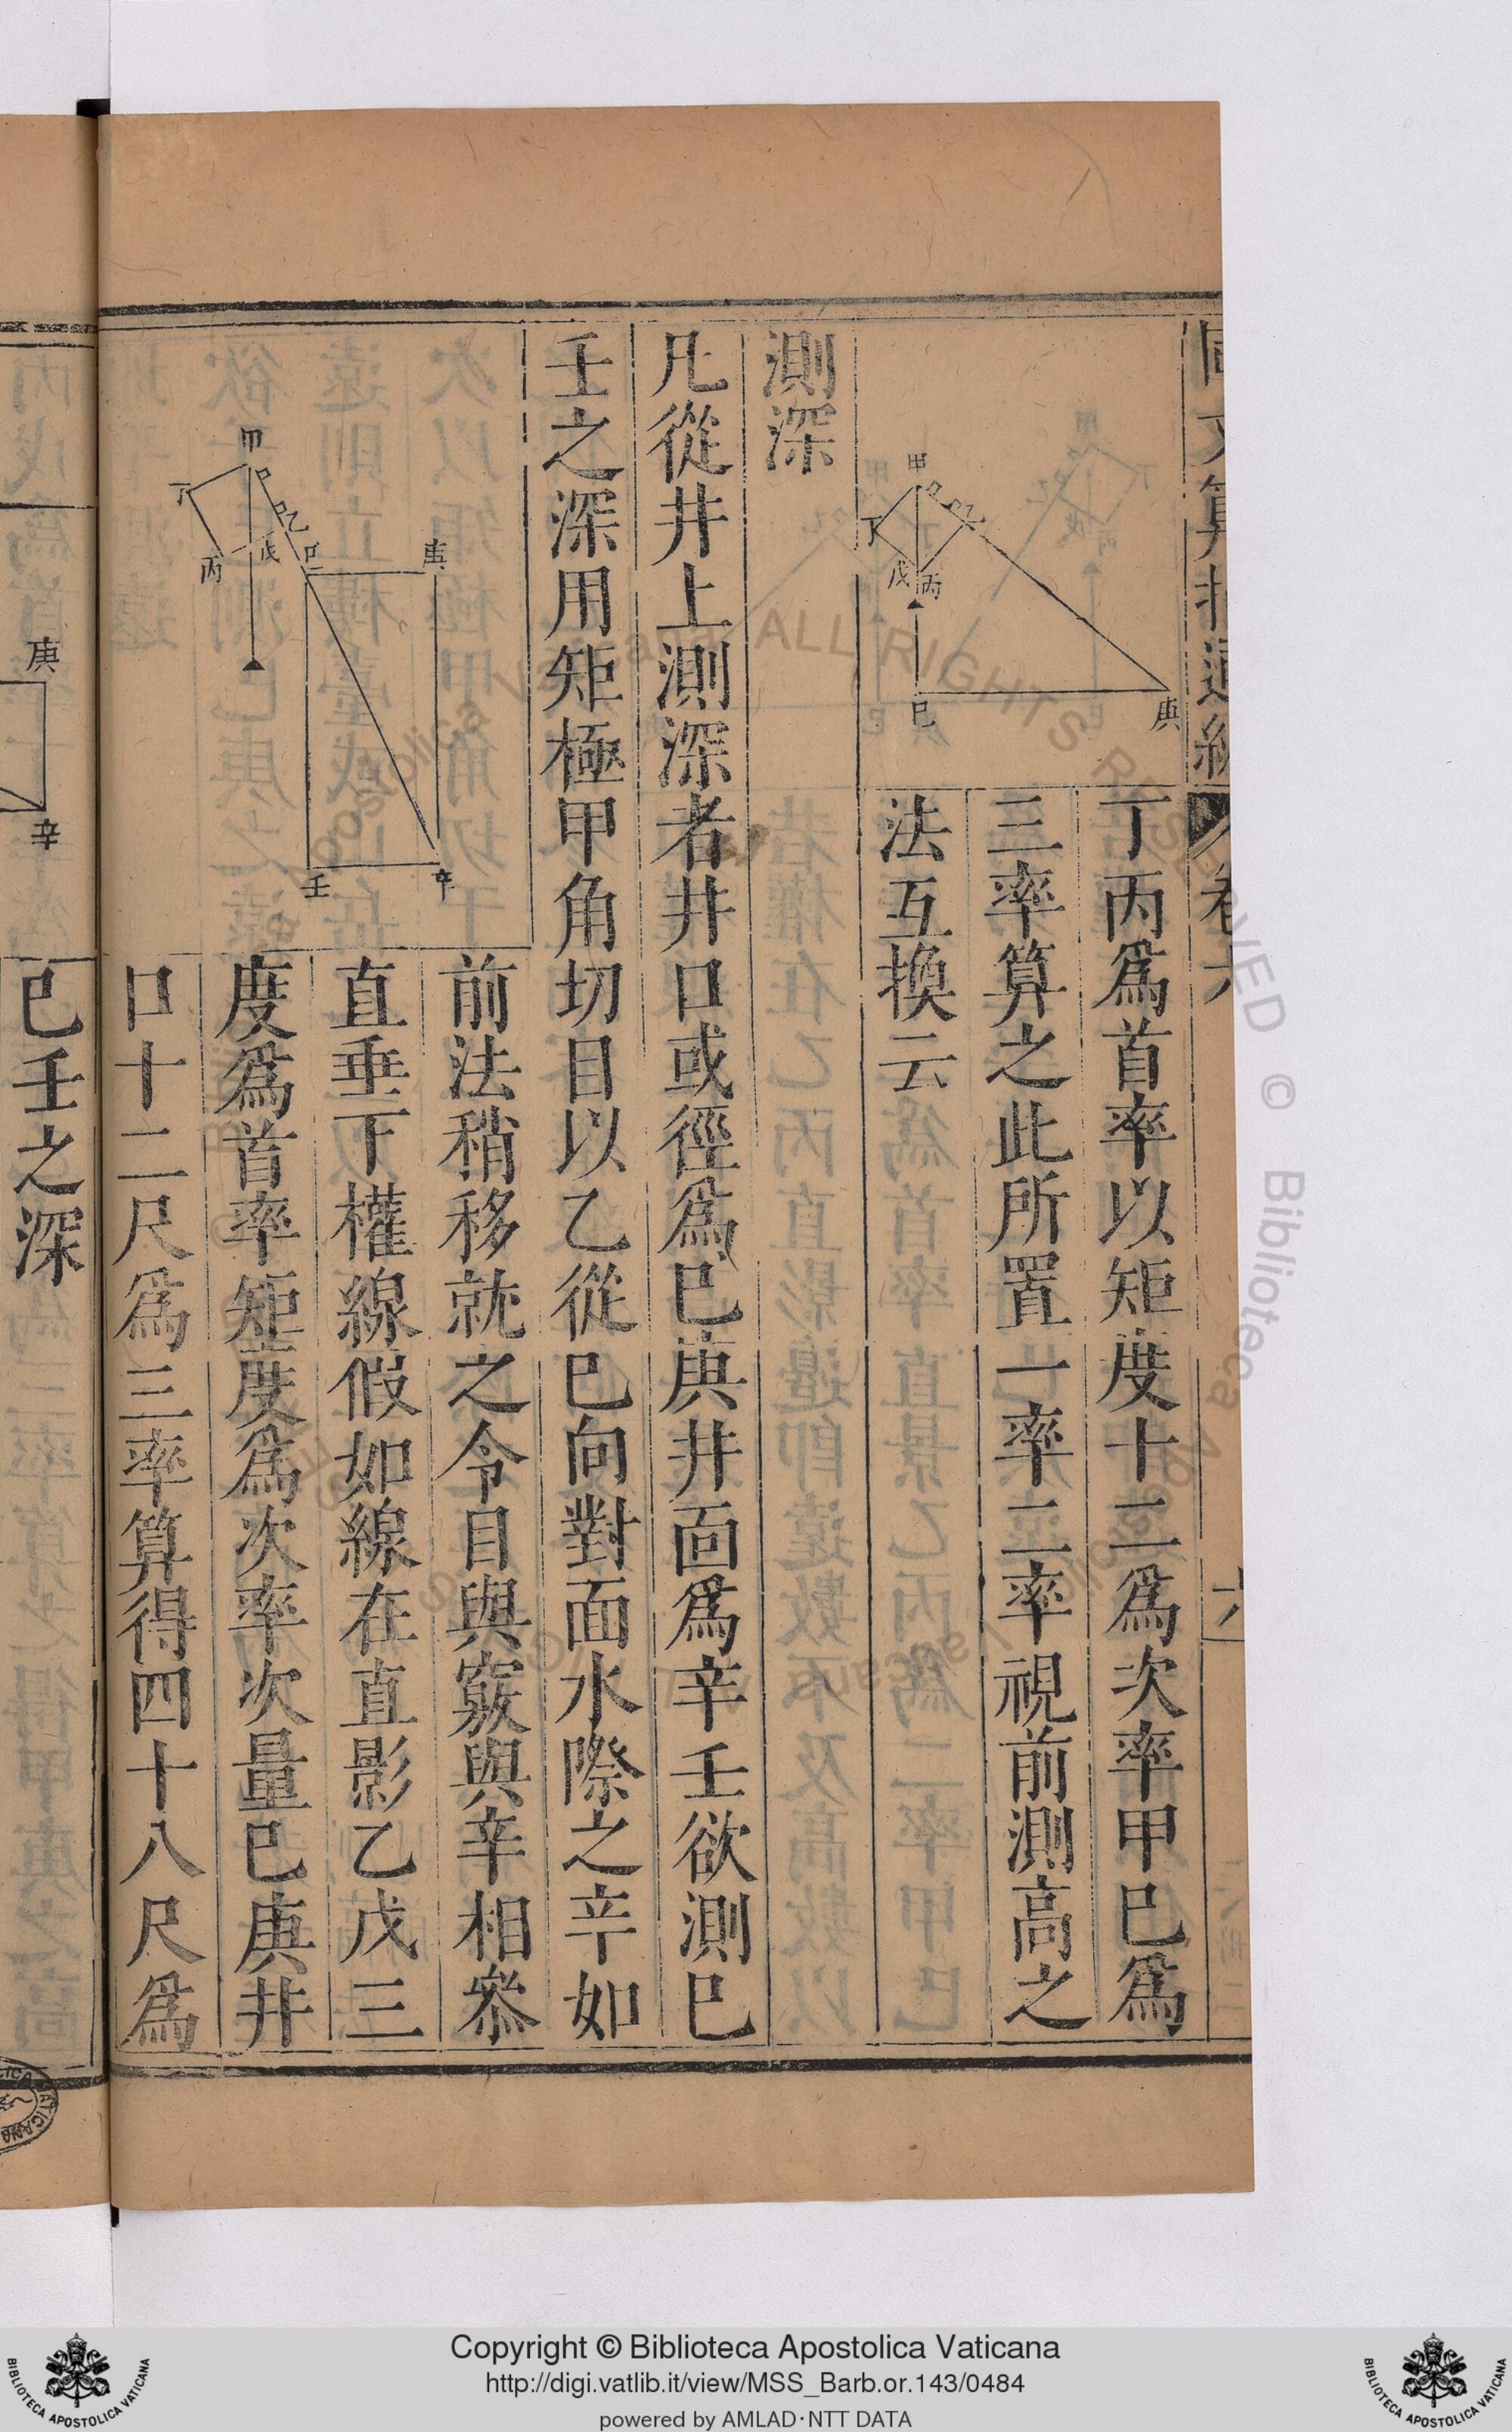 同文算指通編
卷六
六
甲
丁
乙
戊
丙
己
庚
丁丙爲首率以矩度十二爲次率甲巳爲
三率算之此所置一率二率視前測高之
法互換云
測深
凡從井上測深者井口或徑爲巳庚井面爲辛壬欲測巳
壬之深用矩極甲角切目以乙從巳向對面水際之辛如
甲
丁
乙
戊
丙
巳
庚
壬
辛
前法稍移就之令目與竅與辛相叅
直垂下權線假如線在直影乙戊三
度爲首率矩度爲次率次量巳庚井
口十二尺爲三率算得四十八尺爲
庚
辛
巳壬之深
ALL RIGHTS RESERVED
© Biblioteca Apostolica Vaticana
BIBLIOTECA APOSTOLICA VATICANA
Copyright © Biblioteca Apostolica Vaticana
http://digi.vatlib.it/view/MSS_Barb.or.143/0484
powered by AMLAD·NTT DATA
BIBLIOTECA APOSTOLICA VATICANA